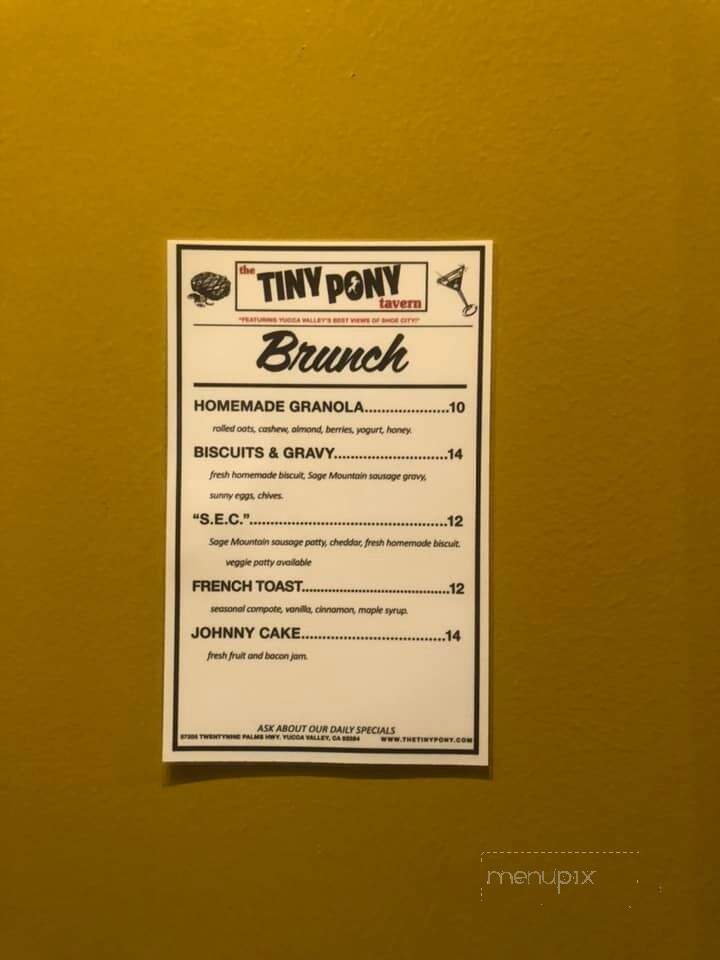 the
TINY PONY
tavern
"FEATURING YUCCA VALLEY'S BEST VIEWS OF SHOE CITY!"
Brunch
HOMEMADE GRANOLA....................10
rolled oats, cashew, almond, berries, yogurt, honey.
BISCUITS & GRAVY...........................14
fresh homemade biscuit, Sage Mountain sausage gravy,
sunny eggs, chives.
"S.E.C."...............................................12
Sage Mountain sausage patty, cheddar, fresh homemade biscuit.
veggie patty available
FRENCH TOAST...................................12
seasonal compote, vanilla, cinnamon, maple syrup.
JOHNNY CAKE..................................14
fresh fruit and bacon jam.
ASK ABOUT OUR DAILY SPECIALS
TWENTYNINE PALMS HWY. YUCCA VALLEY, CA 92284 WWW.THETINYPONY.COM
menupix